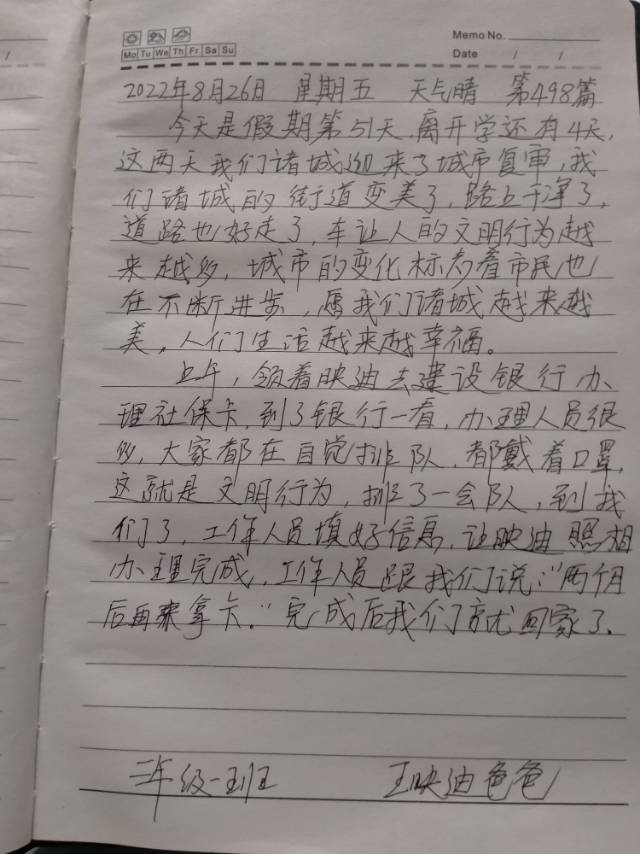 Memo No.
Mo Tu We Th Fr Sa Su
Date / /
2022年8月26日 星期五 天气晴 第498篇
今天是假期第51天,离开学还有4天,
这两天我们诸城迎来了城市复审,我
们诸城的街道变美了,路上干净了,
道路也好走了,车让人的文明行为越
来越多,城市的变化标志着市民也
在不断进步,愿我们诸城越来越
美,人们生活越来越幸福。
上午,领着映迪去建设银行办
理社保卡,到了银行一看,办理人员很
多,大家都在自觉排队,都戴着口罩,
这就是文明行为,排了一会队,到我
们了,工作人员填好信息,让映迪照相
办理完成,工作人员跟我们说:“两个月
后再来拿卡。”完成后我们就回家了。
三年级一班 王映迪爸爸